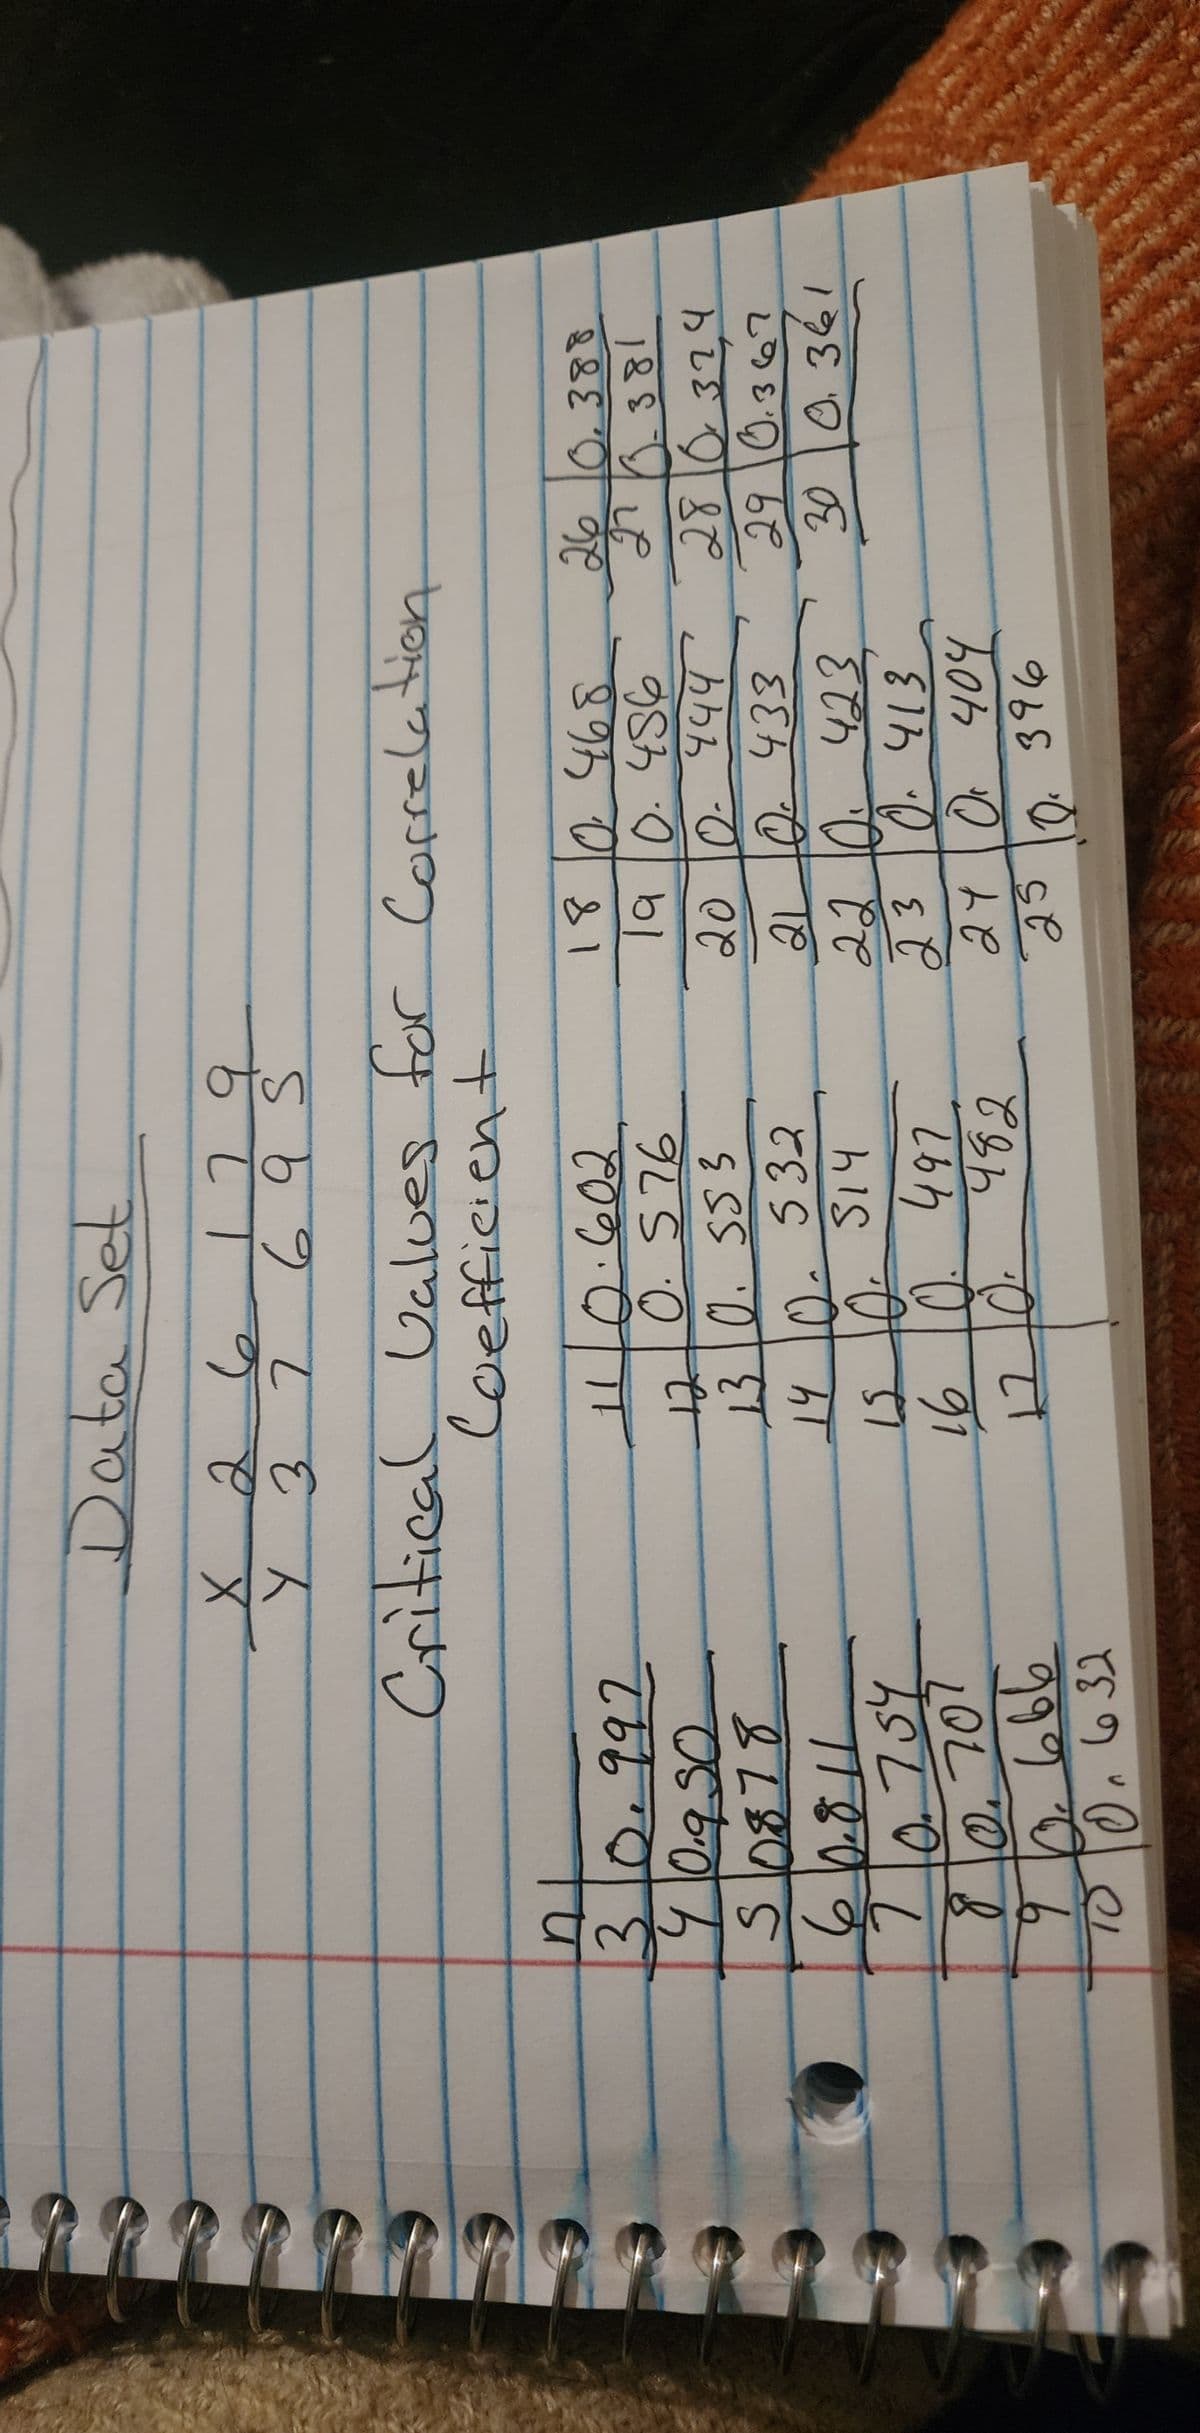 Data Set
x 2 6 1 7 9
y 3 7 6 9 5
Critical Values for Correlation
Coefficient
n
3 0.997 11 0.602 18 0.468 26 0.388
4 0.950 12 0.576 19 0.456 27 0.381
5 0878 13 0.553 20 0.444 28 0.374
6 0.811 14 0.532 21 0.433 29 0.367
7 0.754 15 0.514 22 0.423 30 0.361
8 0.707 16 0.497 23 0.413
9 0.666 17 0.482 24 0.404
10 0.632 25 0.396